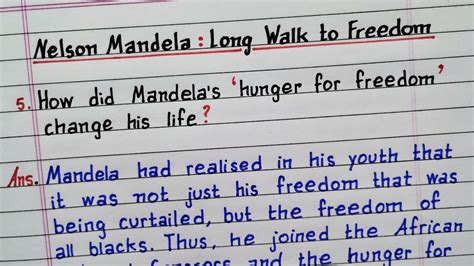 Nelson Mandela : Long Walk to Freedom
5. How did Mandela's 'hunger for freedom'
change his life?
Ans. Mandela had realised in his youth that
it was not just his freedom that was
being curtailed, but the freedom of
all blacks. Thus, he joined the African
and the hunger for